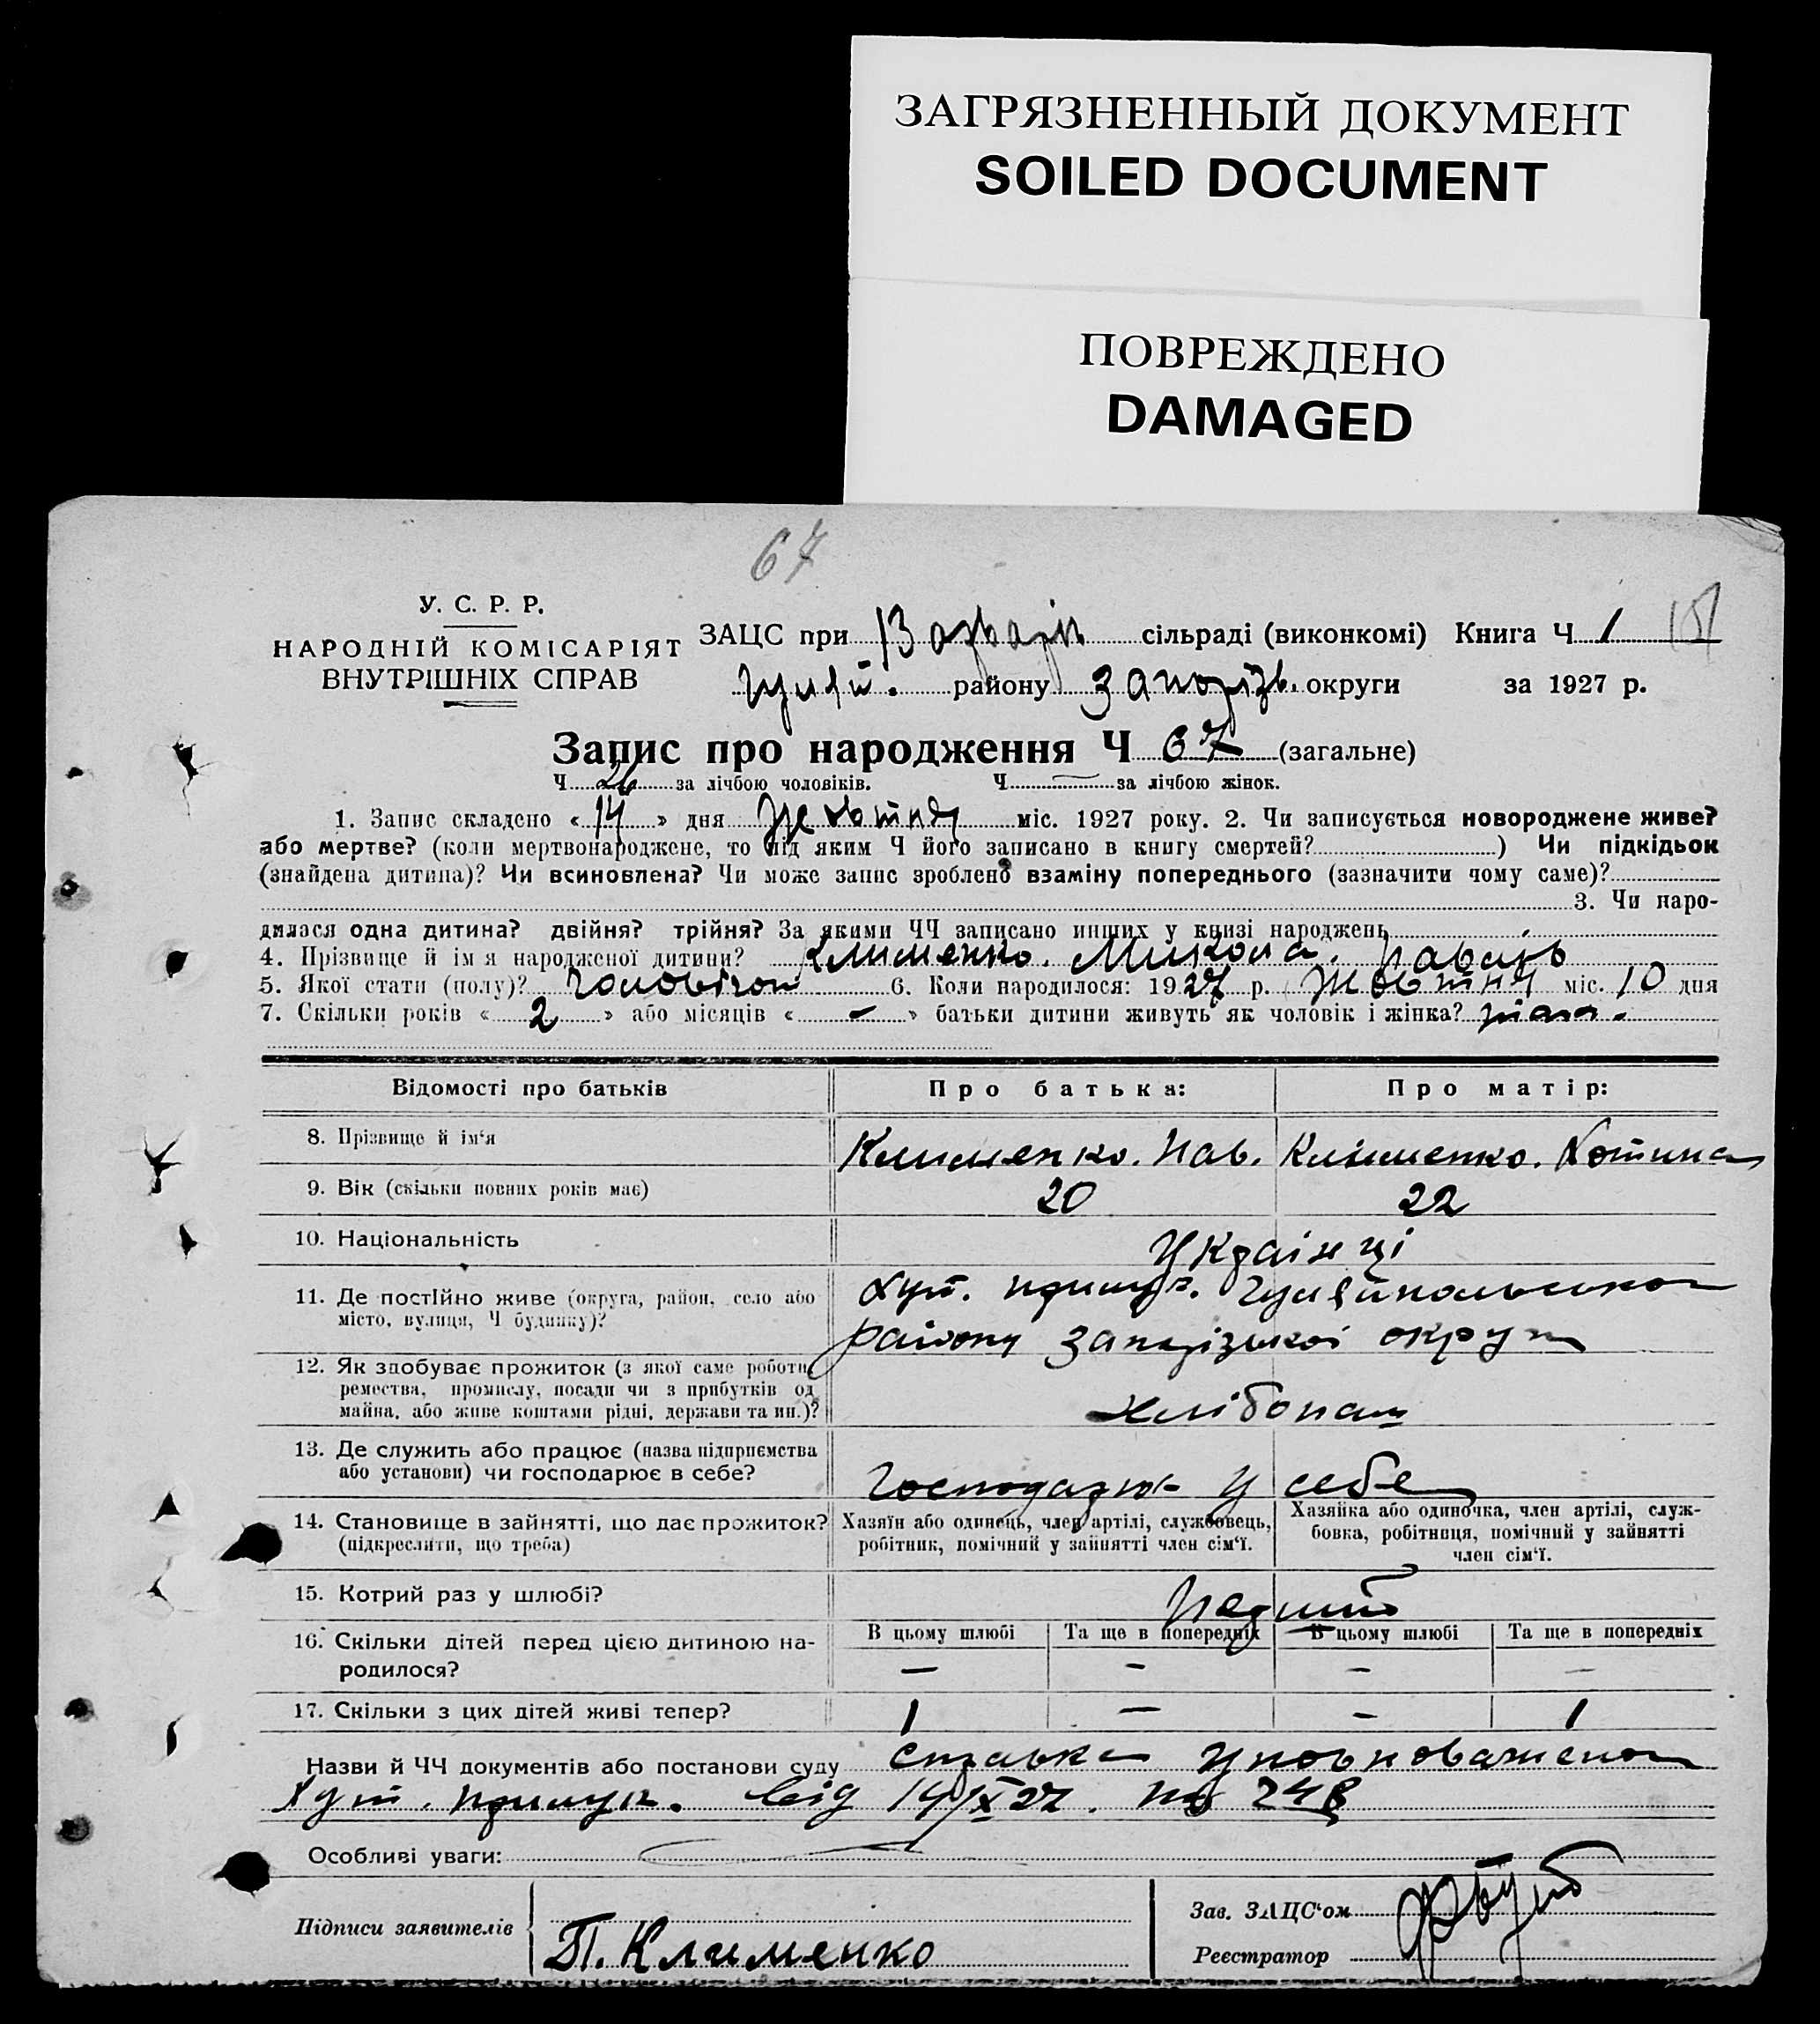 ЗАГРЯЗНЕННЫЙ ДОКУМЕНТ
SOILED DOCUMENT
ПОВРЕЖДЕНО
DAMAGED
67
У. С. Р. Р.
НАРОДНІЙ КОМІСАРІЯТ
ВНУТРІШНІХ СПРАВ
ЗАЦС при сільраді (виконкомі) Книга Ч 1
району Запорізь. округи за 1927 р.
Запис про народження Ч 67 (загальне)
Ч 26 за лічбою чоловіків. Ч — за лічбою жінок.
1. Запис складено « 14 » дня Жовтня міс. 1927 року. 2. Чи записується новороджене живе?
або мертве? (коли мертвонароджене, то під яким Ч його записано в книгу смертей? ) Чи підкідьок
(знайдена дитина)? Чи всиновлена? Чи може запис зроблено взаміну попереднього (зазначити чому саме)?
3. Чи наро-
дилася одна дитина? двійня? трійня? За якими ЧЧ записано инших у книзі народжень
4. Прізвище й ім я народженої дитини? Клименко. Микола.
5. Якої стати (полу)? 6. Коли народилося: 1927 р. Жовтня міс. 10 дня
7. Скільки років « 2 » або місяців « - » батьки дитини живуть як чоловік і жінка?
Відомості про батьків
Про батька:
Про матір:
8. Прізвище й ім'я Клименко. Пав. Клименко.
9. Вік (скільки повних років має) 20 22
10. Національність Українці
11. Де постійно живе (округа, район, село або
місто, вулиця, Ч будинку)?
Хут.
району Запорізької округи
12. Як здобуває прожиток (з якої саме роботи,
ремества, промислу, посади чи з прибутків од
майна, або живе коштами рідні, держави та ин.)?
хлібопаш
13. Де служить або працює (назва підприємства
або установи) чи господарює в себе?
у себе
14. Становище в зайнятті, що дає прожиток?
(підкреслити, що треба)
Хазяїн або одинець, член артілі, службовець,
робітник, помічний у зайнятті член сім'ї.
Хазяйка або одиночка, член артілі, служ-
бовка, робітниця, помічний у зайнятті
член сім'ї.
15. Котрий раз у шлюбі?
16. Скільки дітей перед цією дитиною на-
родилося?
В цьому шлюбі Та ще в попередніх В цьому шлюбі Та ще в попередніх
— - - -
17. Скільки з цих дітей живі тепер? 1 — - 1
Назви й ЧЧ документів або постанови суду справка
Хут. від 14/X 27.
Особливі уваги:
Підписи заявителів
П. Клименко
Зав. ЗАЦС'ом
Реєстратор